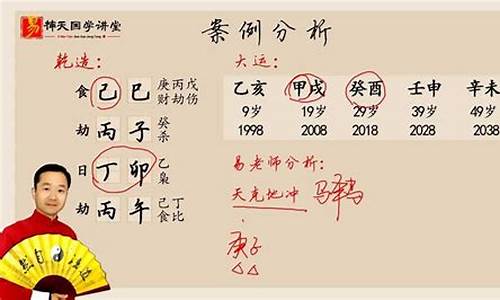 易 天国学讲堂
案例分析
乾造:
食 己 巳 庚丙戊
财劫伤
劫 丙 子 癸
杀
日 丁 卯 乙
枭
劫 丙 午 己丁
食比
大运:
乙亥 甲戌 癸酉 壬申 辛未
9岁 19岁 29岁 39岁 49岁
1998 2008 2018 2028 2038
易老师分析:
天克地冲
庚子